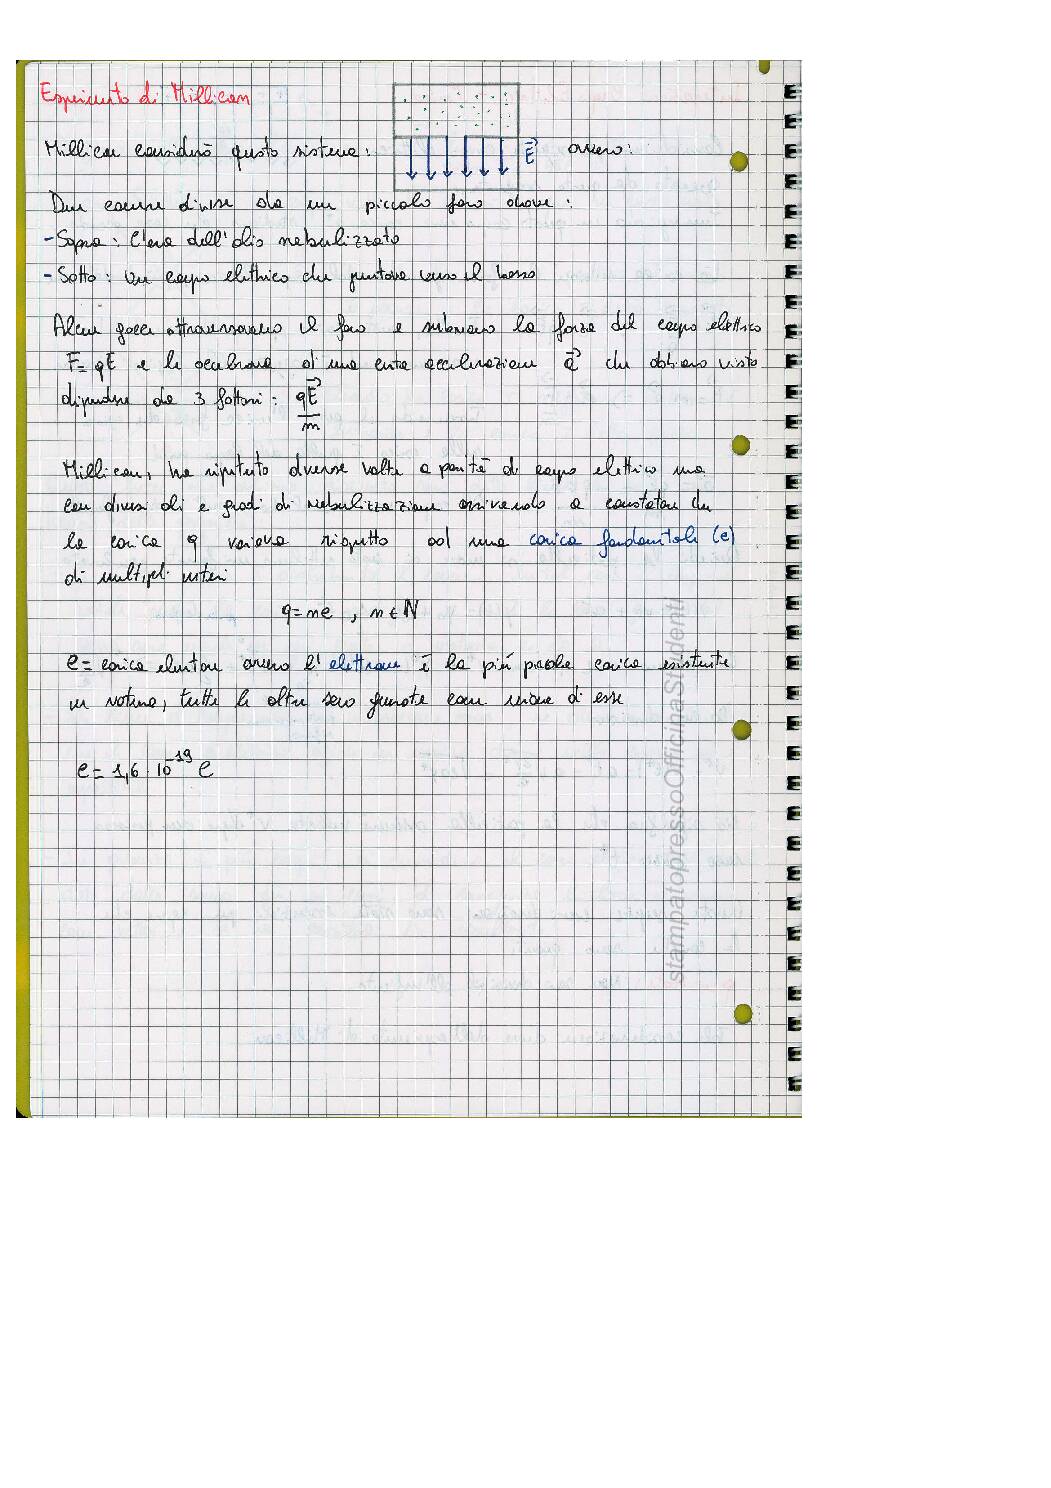 Esperimento di Millican
Millican considerò questo sistema: E ovvero:
Due camere divise da un piccolo foro dove:
- Sopra: C'era dell'olio nebulizzato
- Sotto: Un campo elettrico che puntava verso il basso
Alcune gocce attraversavano il foro e subivano la forza del campo elettrico
F = qE e le accelerava di una certa accelerazione a che abbiamo visto
dipendere da 3 fattori: qE/m
Millican, ha ripetuto diverse volte a parità di campo elettrico ma
con diversi oli e gradi di nebulizzazione arrivando a constatare che
la carica q variava rispetto ad una carica fondamentale (e)
di multipli interi
q = ne , n ∈ N
e = carica elementare ovvero l'elettrone è la più piccola carica esistente
in natura, tutte le altre sono generate come unione di esse
e = 1,6 · 10^-19 C
stampatopressoOfficinaStudenti